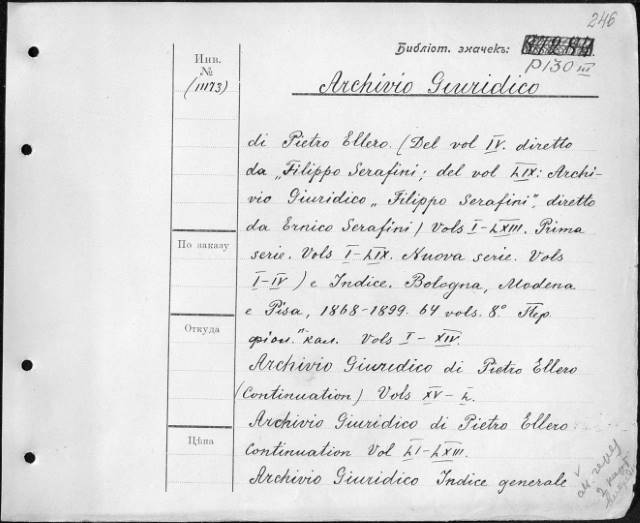 246
Библіот. значекъ:
P130 III
Инв.
№
(11173)
Archivio Giuridico
di Pietro Ellero. (Del vol IV. diretto
da „Filippo Serafini; del vol LIX: Archi-
vio Giuridico „Filippo Serafini", diretto
da Ernico Serafini) Vols I-LXIII. Prima
serie. Vols I-LIX. Nuova serie. Vols
I-IV) e Indice. Bologna, Modena
e Pisa, 1868-1899. 64 vols. 8° Пер
фіол. "кал. Vols I-XIV.
Archivio Giuridico di Pietro Ellero
(Continuation) Vols XV-L.
Archivio Giuridico di Pietro Ellero
Continuation Vol LI-LXIII.
Archivio Giuridico Indice generale
По заказу
Откуда
Цѣна